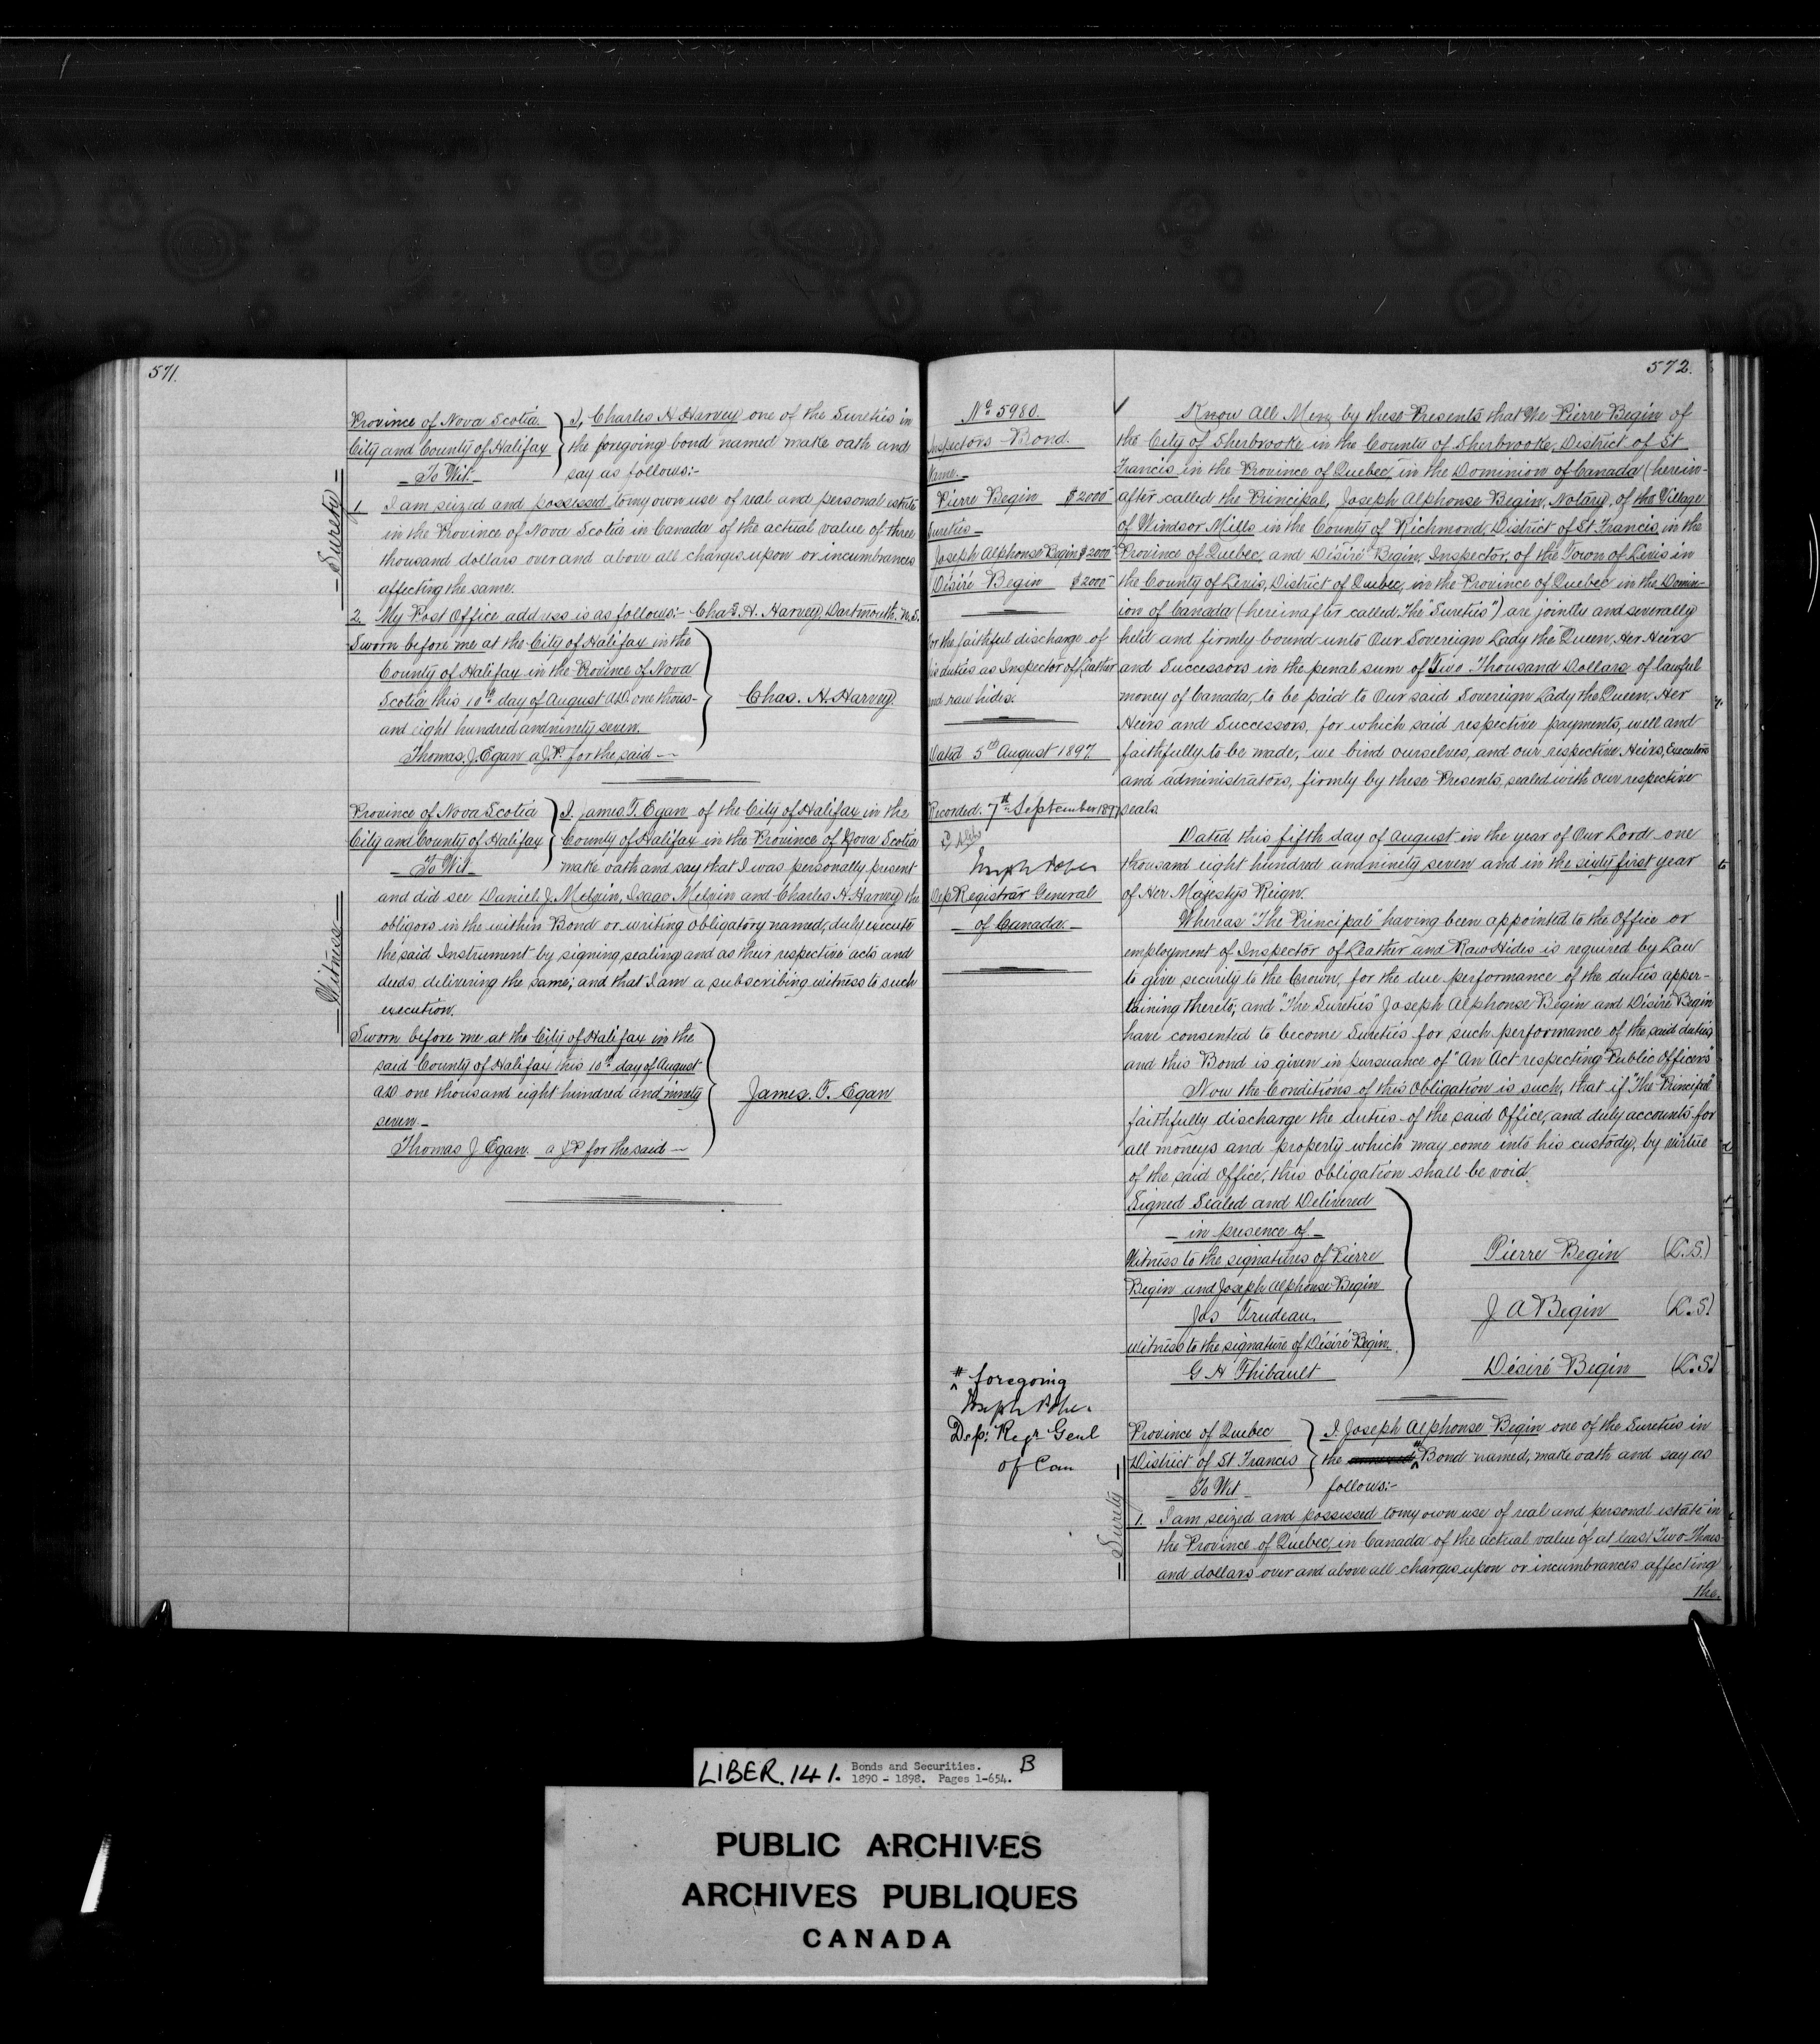 571.
Province of Nova Scotia. } I, Charles H Harvey one of the Sureties in
City and County of Halifax } the foregoing bond named make oath and
To Wit.- } say as follows:-
- Surety -
1 I am seized and possessed to my own use of real and personal estate
in the Province of Nova Scotia in Canada of the actual value of three
thousand dollars over and above all charges upon or incumbrances
affecting the same.
2. My Post Office address is as follows:- Chas H. Harvey, Dartmouth. N.S.
Sworn before me at the City of Halifax in the
County of Halifax in the Province of Nova
Scotia this 10th day of August A.D. one thous-
and eight hundred and ninety seven.
Chas. H. Harvey.
Thomas. J. Egan a J.P. for the said -
Province of Nova Scotia } I. James. T. Egan of the City of Halifax in the
City and County of Halifax } County of Halifax in the Province of Nova Scotia
To Wit - make oath and say that I was personally present
- Witness -
and did see Daniel. J. Melvin, Isaac Melvin and Charles H Harvey the
obligors in the within Bond or writing obligatory named, duly execute
the said Instrument by signing sealing and as their respective acts and
deeds delivering the same; and that I am a subscribing witness to such
execution.
Sworn before me at the City of Halifax in the
said County of Halifax this 10th day of August
AD one thousand eight hundred and ninety
seven. -
James. T. Egan
Thomas J. Egan. a J.P for the said -
572.
No 5980.
Inspectors Bond.
Name.-
Pierre Begin $2000-
Sureties -
Joseph Alphonse Begin $2000-
Désiré Begin $2000-
for the faithful discharge of
his duties as Inspector of Leather
and raw hides.
Dated 5th August 1897
Recorded. 7th September 1897
Joseph Pope
Dep Registrar General
- of Canada. -
Know All Men by these Presents that We Pierre Begin of
the City of Sherbrooke in the County of Sherbrooke, District of St
Francis in the Province of Quebec in the Dominion of Canada (herein-
after called the Principal, Joseph Alphonse Begin, Notary, of the Village
of Windsor Mills in the County of Richmond, District of St Francis in the
Province of Quebec, and Désiré Begin, Inspector, of the Town of Levis in
the County of Levis, District of Quebec, in the Province of Quebec in the Domin-
ion of Canada (hereinafter called. The "Sureties") are jointly and severally
held and firmly bound unto Our Sovereign Lady the Queen, Her Heirs
and Successors in the penal sum of Two Thousand Dollars of lawful
money of Canada, to be paid to Our said Sovereign Lady the Queen, Her
Heirs and Successors, for which said respective payments, well and
faithfully to be made, we bind ourselves, and our respective Heirs, Executors
and administrators, firmly by these Presents, sealed with our respective
seals.
Dated this fifth day of August in the year of Our Lord one
thousand eight hundred and ninety seven and in the sixty first year
of Her Majestys Reign.
Whereas "The Principal" having been appointed to the Office or
employment of Inspector of Leather and Raw Hides is required by Law
to give security to the Crown, for the due performance of the duties apper-
taining thereto; and "The Sureties" Joseph Alphonse Begin and Désiré Begin
have consented to become Sureties for such performance of the said duties,
and this Bond is given in pursuance of "An Act respecting Public Officers"
Now the Conditions of this Obligation is such, that if "The Principal"
faithfully discharge the duties of the said Office, and duly accounts for
all moneys and property which may come into his custody, by virtue
of the said Office; this obligation shall be void.
Signed Sealed and Delivered
- in presence of -
Witness to the signatures of Pierre
Begin and Joseph Alphonse Begin
Jos Trudeau.
Witness to the signature of Désiré Begin.
G H Thibault
Pierre Begin (L.S.)
J A Begin (L.S.)
Désiré Begin (L.S.)
# foregoing
Joseph Pope.
Dep: Regr Genl
of Can
Province of Quebec } I. Joseph Alphonse Begin one of the Sureties in
District of St Francis } the annexed # Bond named, make oath and say as
- To Wit - follows:-
- Surety -
1. I am seized and possessed to my own use of real and personal estate in
the Province of Quebec, in Canada of the actual value of at least Two Thous-
and dollars over and above all charges upon or incumbrances affecting
the.
LIBER. 141. Bonds and Securities. B
1890 - 1898. Pages 1-654.
PUBLIC ARCHIVES
ARCHIVES PUBLIQUES
CANADA